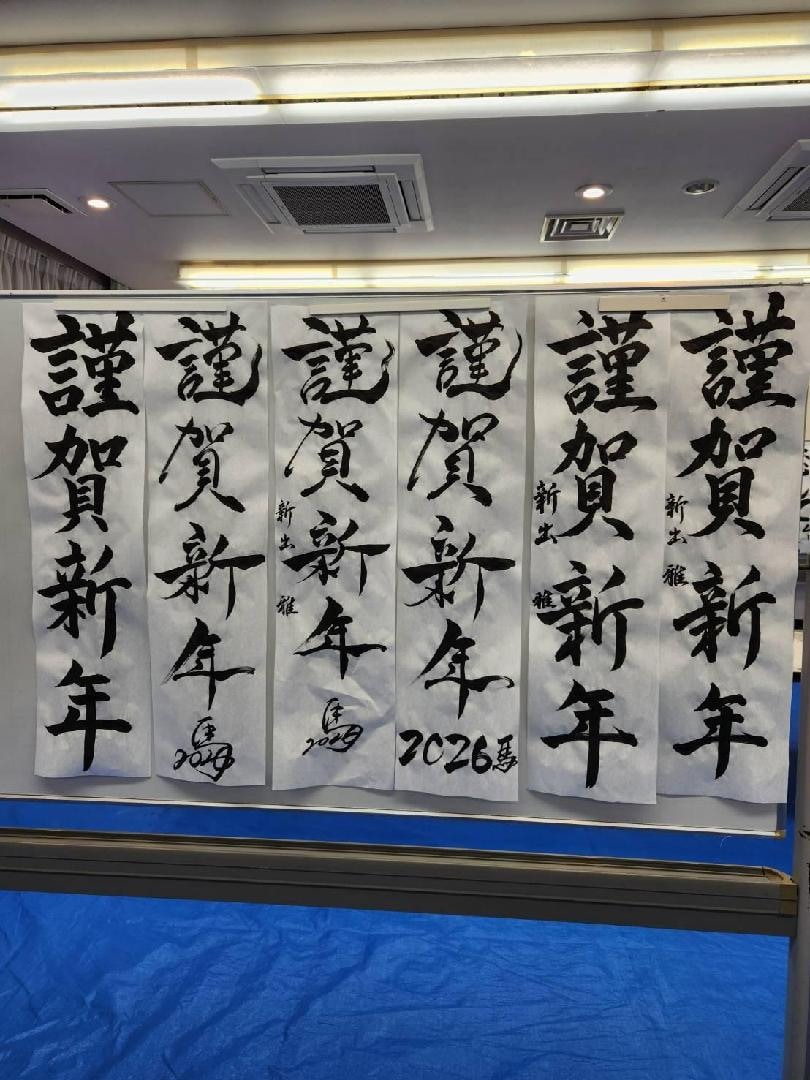 謹賀新年
新出 雅
謹賀新年
新出 雅
謹賀新年
2026馬
謹賀新年
馬
2026
新出 雅
謹賀新年
馬
2026
謹賀新年